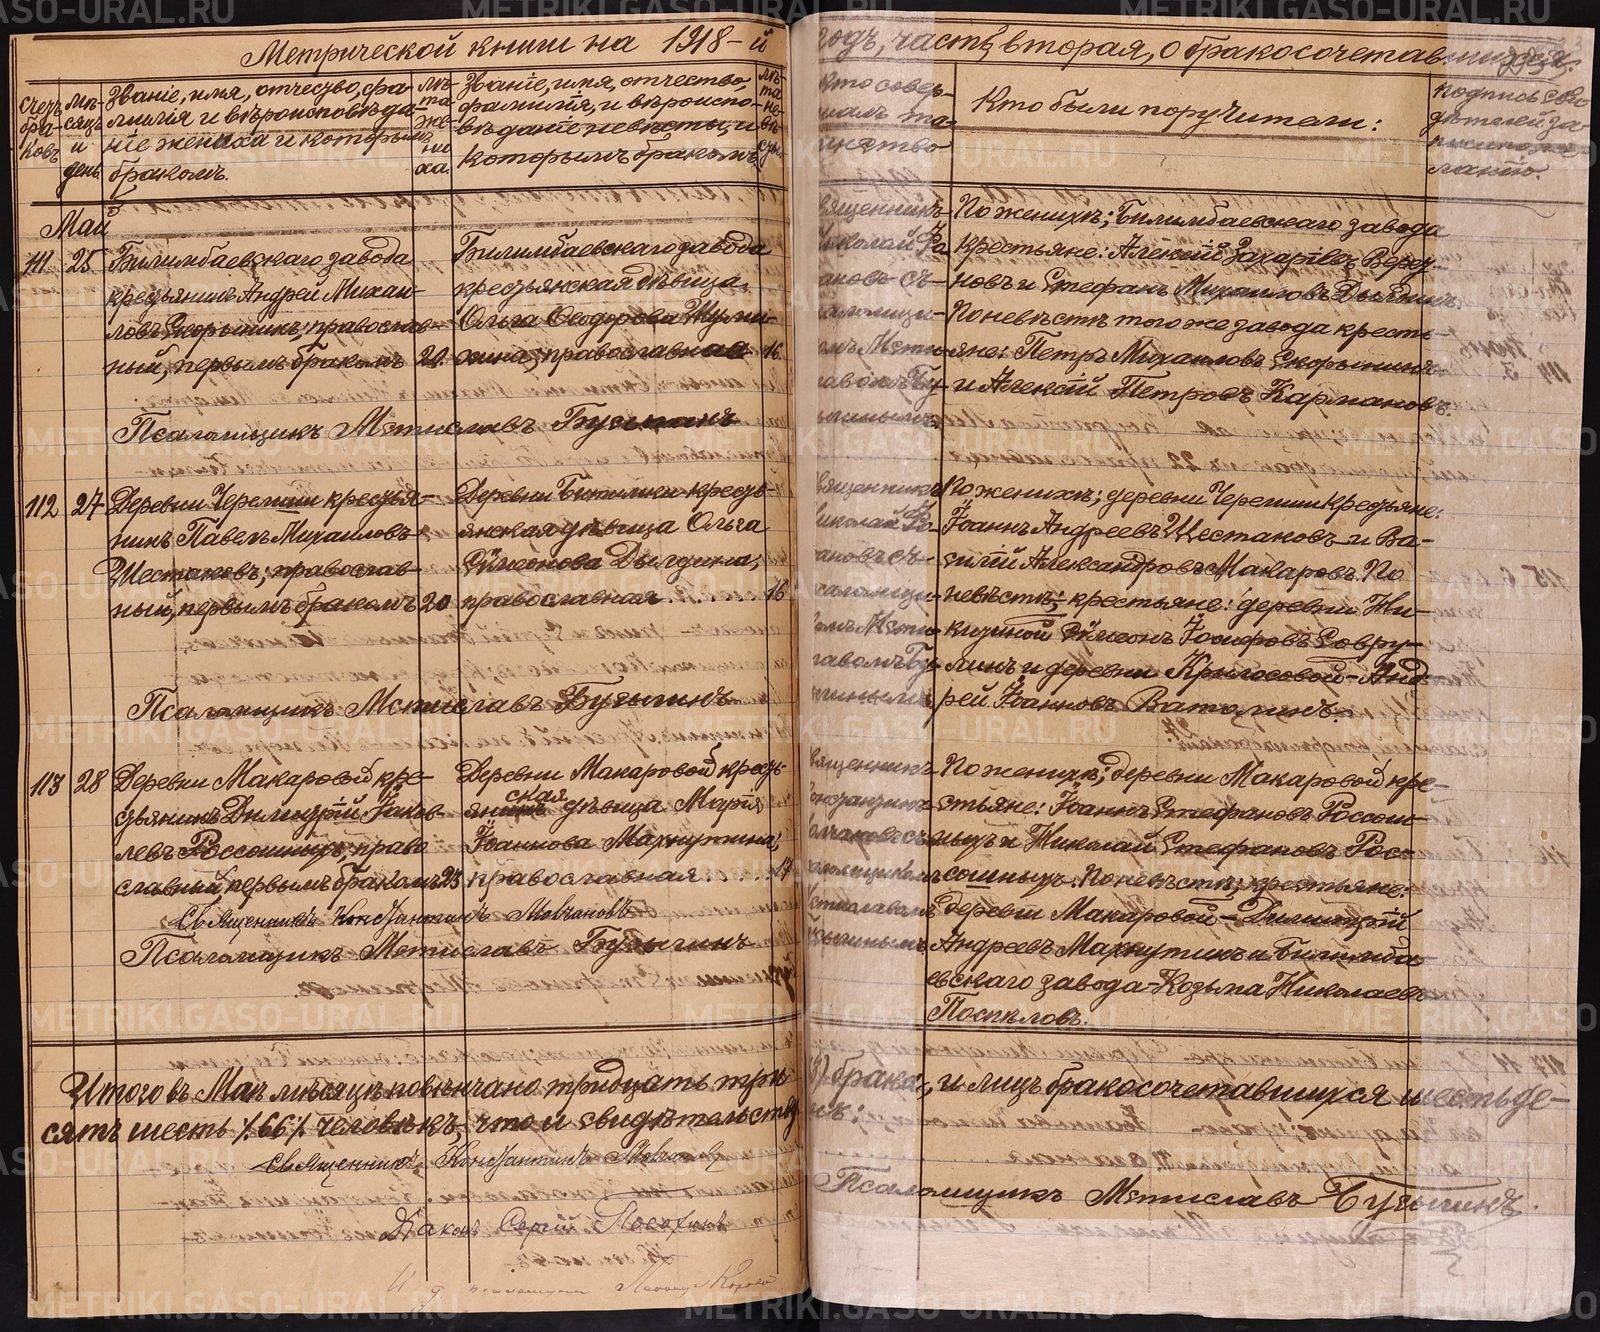 Метрической книги на 1918-й
годъ, часть вторая, о бракосочетавшихся.
Счетъ браковъ
мѣсяцъ и день
Званіе, имя, отчество, фа-
милія и вѣроисповѣда-
ніе жениха и которымъ
бракомъ.
лѣта жениха.
Званіе, имя, отчество,
фамилія, и вѣроиспо-
вѣданіе невѣсты, и
которымъ бракомъ.
лѣта невѣсты.
Кто совер-
шалъ та-
инство
Кто были поручители:
Подпись сви-
дѣтелей за-
писи по же-
ланію.
Май
111 25
Билимбаевскаго завода
крестьянинъ Андрей Михаи-
ловъ Скорынинъ; православ-
ный, первымъ бракомъ 20.
Билимбаевскаго завода
крестьянская дѣвица
Ольга Ѳеодорова
православная 16
Священникъ
Николай
съ
псаломщи-
комъ Мсти-
славомъ Бу-
зыгинымъ
По женихѣ; Билимбаевскаго завода
крестьяне: Алексій Захаріевъ
и Стефанъ Михаиловъ Дылдинъ.
По невѣстѣ того же завода кресть-
яне: Петръ Михаиловъ Скорынинъ
и Алексій Петровъ Кармановъ.
Псаломщикъ Мстиславъ Бузыгинъ
112 27
Деревни Черемши крестья-
нинъ Павелъ Михаиловъ
Шестаковъ; православ-
ный, первымъ бракомъ 20
Деревни Битимки кресть-
янская дѣвица Ольга
Сѵмеонова Дылдина,
православная 16
Священникъ
Николай
съ
псаломщи-
комъ Мсти-
славомъ Бу-
зыгинымъ
По женихѣ; деревни Черемши крестьяне:
Іоаннъ Андреевъ Шестаковъ и Ва-
силій Александровъ Макаровъ. По
невѣстѣ; крестьяне: деревни Ни-
Сѵмеонъ Іосифовъ
и деревни Крылосовой - Анд-
рей Іоанновъ Ваталинъ.
Псаломщикъ Мстиславъ Бузыгинъ
113 28
Деревни Макаровой кре-
стьянинъ Димитрій Іаков-
левъ Россошныхъ; право-
славный первымъ бракомъ 23
Деревни Макаровой кресть-
янская дѣвица Марія
Іоаннова Махнутина,
православная 17
Священникъ
Константинъ
Мовчановъ съ
псаломщикомъ
Мстиславомъ
Бузыгинымъ
По женихѣ; деревни Макаровой кре-
стьяне: Іоаннъ Стефановъ Россош-
ныхъ и Николай Стефановъ Рос-
сошныхъ. По невѣстѣ; крестьяне:
деревни Макаровой - Димитрій
Андреевъ Махнутинъ и Билимба-
евскаго завода - Козьма Николаевъ
Поспѣловъ.
Священникъ Константинъ Мовчановъ
Псаломщикъ Мстиславъ Бузыгинъ
Итого въ Маѣ мѣсяцѣ повѣнчано тридцать три
брака, и лицъ бракосочетавшихся шестьде-
сятъ шесть /.66/. человѣкъ, что и свидѣтельству
Священникъ Константинъ Мовчановъ
Псаломщикъ Мстиславъ Бузыгинъ.
Діаконъ Сергій
METRIKI.GASO-URAL.RU